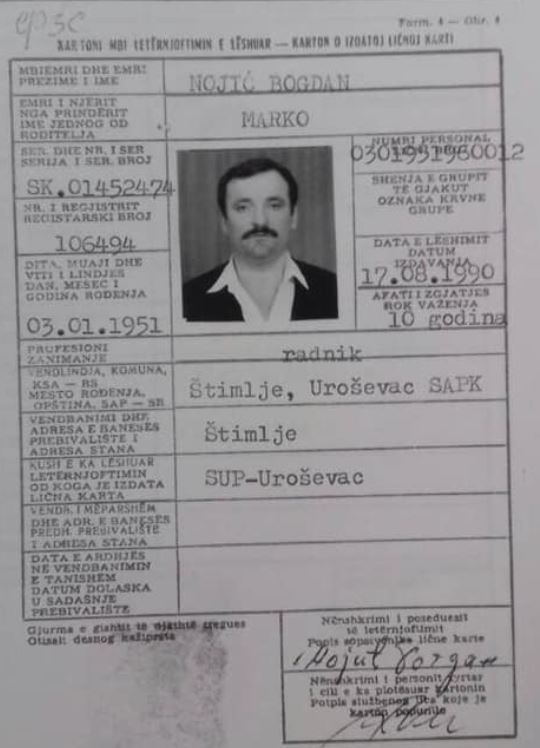 Form. 4 — Obr. 4
KARTONI MBI LETËRNJOFTIMIN E LËSHUAR — KARTON O IZDATOJ LIČNOJ KARTI
MBIEMRI DHE EMRI
PREZIME I IME
NOJIĆ BOGDAN
EMRI I NJËRIT
NGA PRINDËRIT
IME JEDNOG OD
RODITELJA
MARKO
SER. DHE NR. I SER
SERIJA I SER. BROJ
SK.01452474
NUMRI PERSONAL
0301951960012
SHENJA E GRUPIT
TË GJAKUT
OZNAKA KRVNE
GRUPE
NR. I REGJISTRIT
REGISTARSKI BROJ
106494
DATA E LËSHIMIT
DATUM
IZDAVANJA
17.08.1990
DITA, MUAJI DHE
VITI I LINDJES
DAN, MESEC I
GODINA ROĐENJA
03.01.1951
AFATI I ZGJATJES
ROK VAŽENJA
10 godina
PROFESIONI
ZANIMANJE
radnik
VENDLINDJA, KOMUNA,
KSA — RS
MESTO ROĐENJA,
OPŠTINA, SAP — SR
Štimlje, Uroševac SAPK
VENDBANIMI DHE
ADRESA E BANESËS
PREBIVALIŠTE I
ADRESA STANA
Štimlje
KUSH E KA LËSHUAR
LETËRNJOFTIMIN
OD KOGA JE IZDATA
LIČNA KARTA
SUP-Uroševac
VENDB. I MËPARSHËM
DHE ADR. E BANESËS
PREDH. PREBIVALIŠTE
I ADRESA STANA
DATA E ARDHJES
NË VENDBANIMIN
E TANISHËM
DATUM DOLASKA
U SADAŠNJE
PREBIVALIŠTE
Gjurma e gishtit të djathtë tregues
Otisak desnog kažiprsta
Nënshkrimi i poseduesit
të letërnjoftimit
Potpis sopstvenika lične karte
Nënshkrimi i personit zyrtar
i cili e ka plotësuar kartonin
Potpis službenog lica koje je
karton popunilo